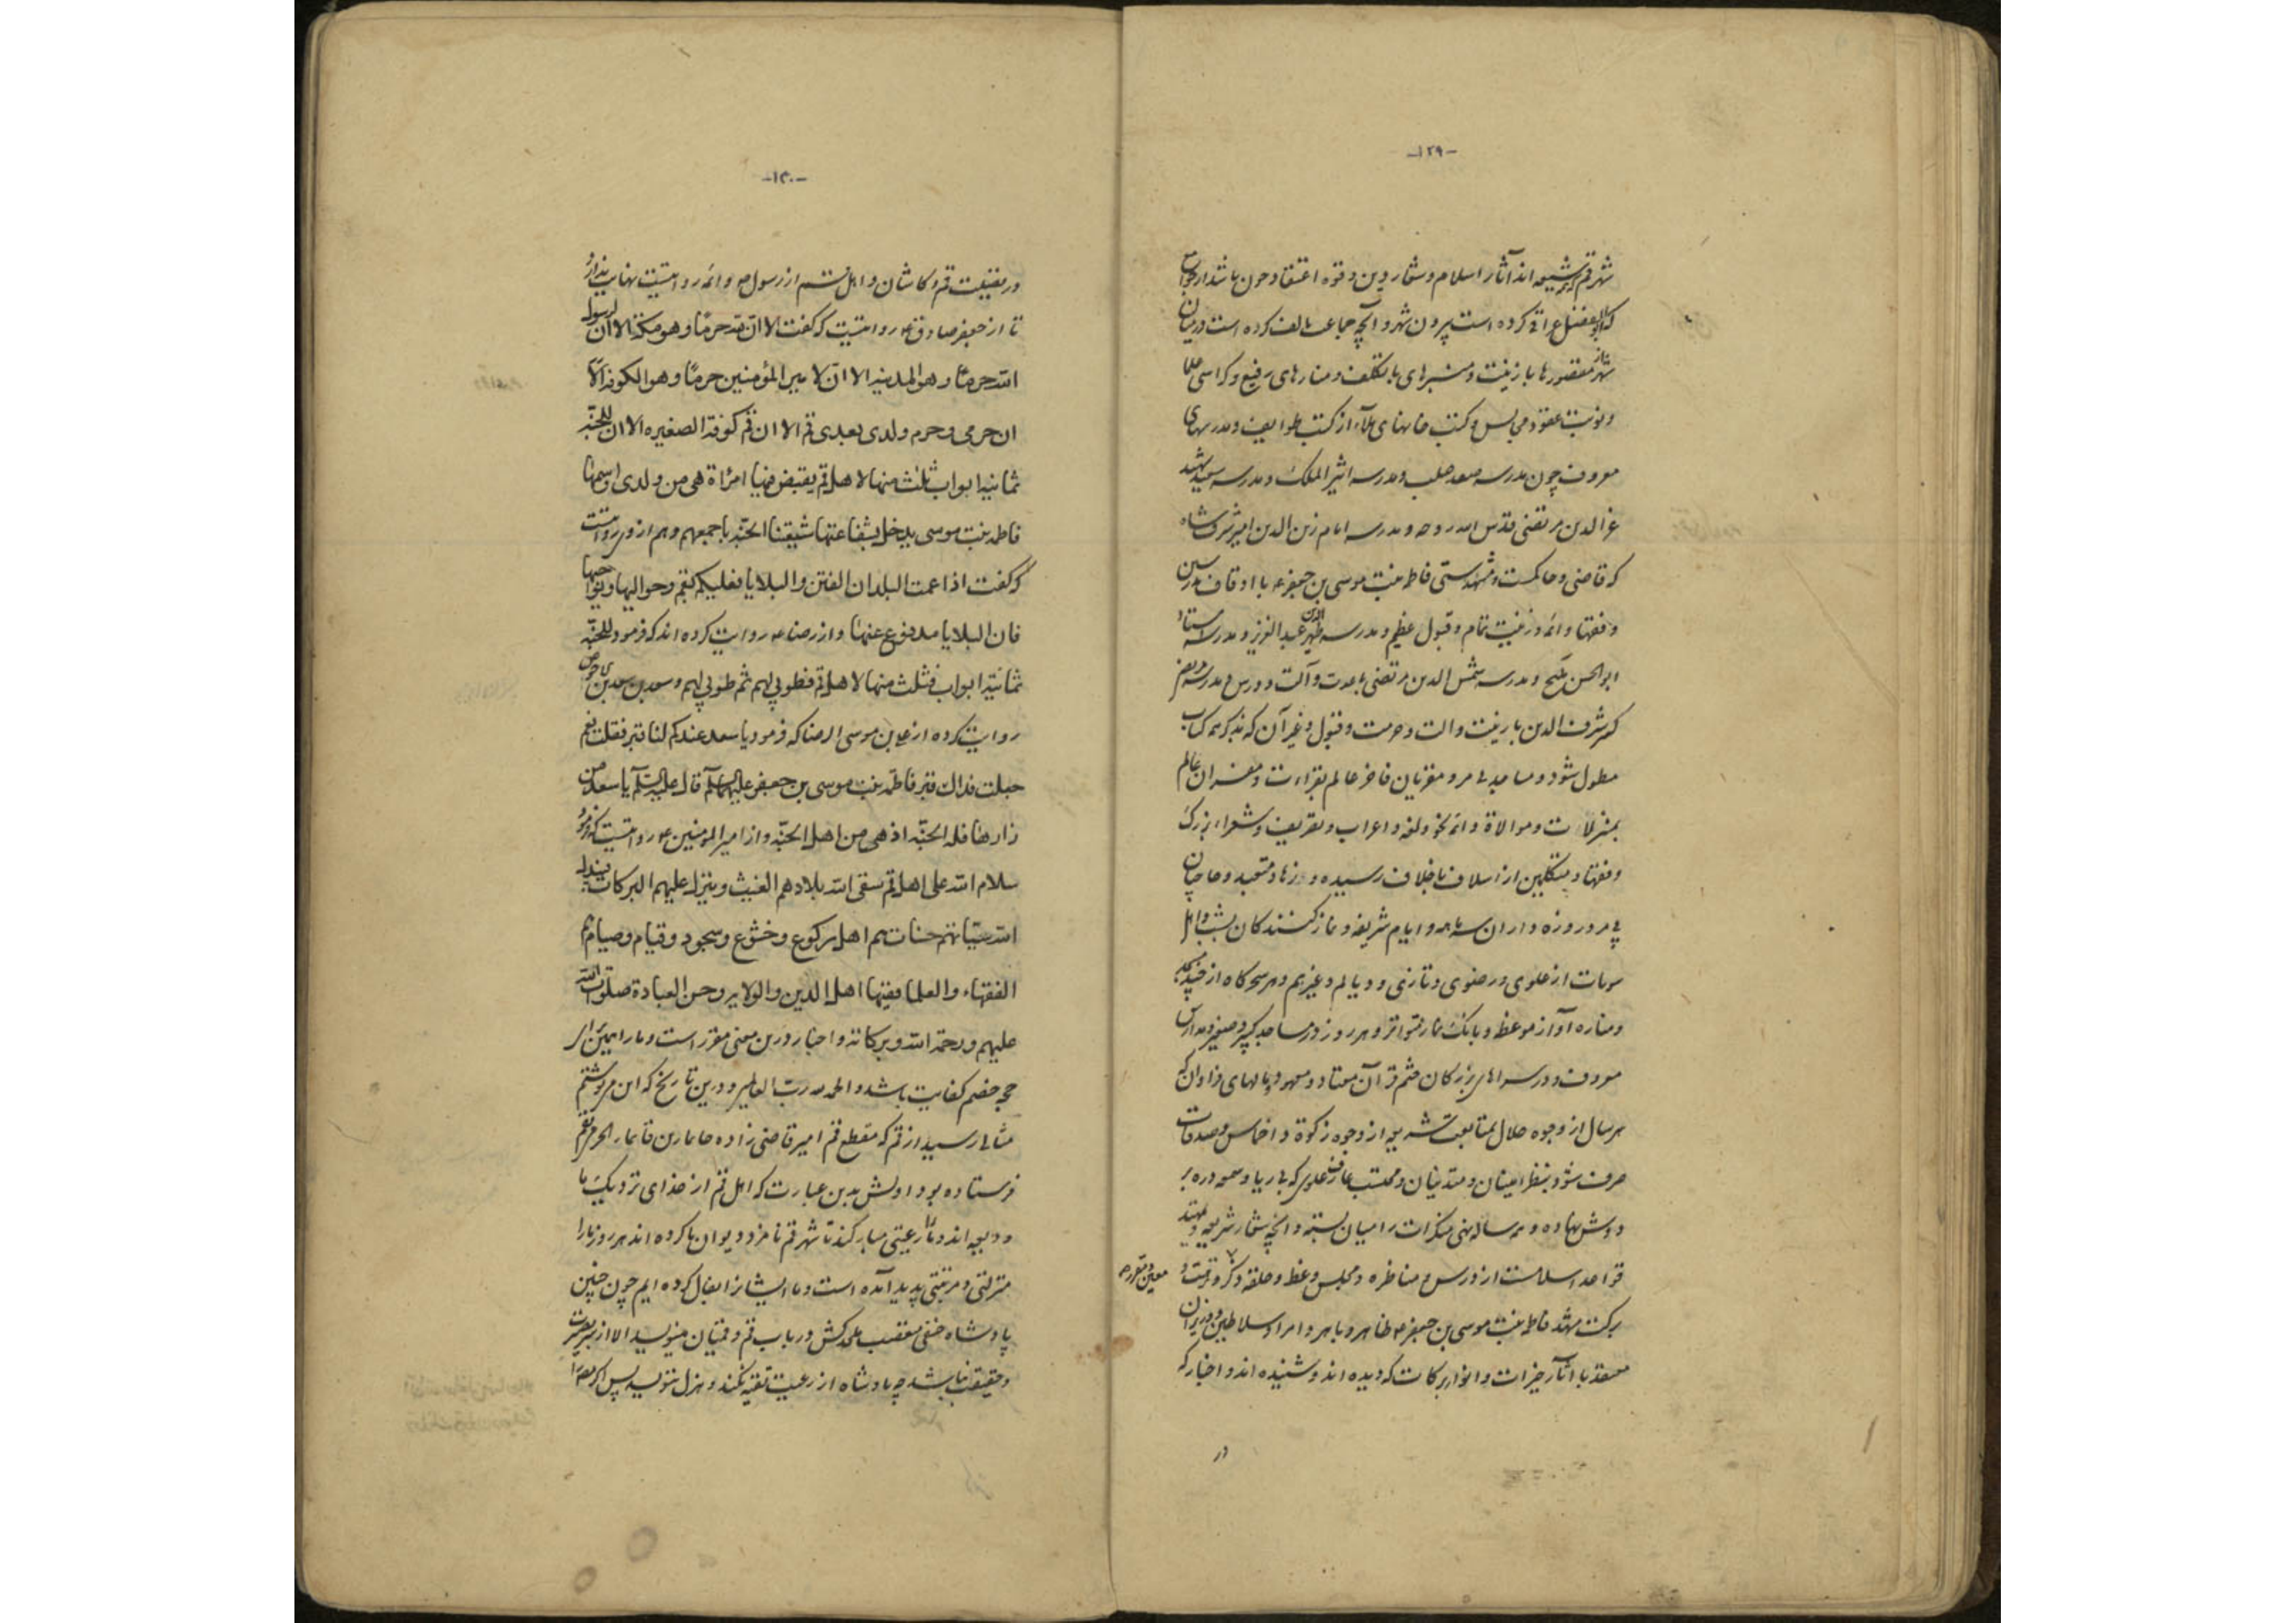 -۱۲۹-
شهر قم که شیعه اند آثار اسلام و شعار دین و قوه اعتقاد چون باشد از جوامع
که ابوالفضل عراقی کرده است بیرون شهر و آنچه جماعت کرده است در میان
شهر مقصورها با زینت و منبرهای با تکلف و منارهای رفیع و کراسی علما
و نوبت عقود مجالس و کتب خانهای ملاء از کتب طوایف و مدرسهای
معروف چون مدرسه سعد صلب و مدرسه اثیر الملک و مدرسه سید شهید
عز الدین مرتضی قدس الله روحه و مدرسه امام زین الدین امیر شرف شاه
که قاضی و حاکمست و مشهد ستی فاطمه بنت موسی بن جعفر ع با اوقاف و مدرسین
و فقها و ائمه و زینت تمام و قبول عظیم و مدرسه ظهیر الدین عبد العزیز و مدرسه استاد
ابو الحسن کمیج و مدرسه شمس الدین مرتضی با عدت و آلت و درس و مدرسه مرتضی
کبیر شرف الدین با زینت و الت و حرمت و قبول و غیر آن که بذکر همه کتاب
مطول شود و مساجد بی مر و مقریان فاخر عالم بقراءت و مفسران عالم
بمنزلات و موالاة و ائمه نحو و لغه و اعراب و تصریف و شعراء بزرگ
و فقها و متکلمین از اسلاف با خلاف رسیده و زهاد متعبد و حاجیان
بی مر و روزه داران سه ماهه و ایام شریفه و نماز کنندکان بشب و اهل
بیوتات از علوی و رضوی و تازی و دیالم و غیرهم و هر سحرکاه از چند مسجد
و مناره آواز موعظه و بانک نماز متواتر و هر روز در مساجد کبیر و صغیر و مدارس
معروف و در سراهای بزرکان ختم قرآن معتاد و معهود و مالهای فراوان که
هر سال از وجوه حلال بمتابعت شریعه از وجوه زکوة و اخماس و صدقات
صرف شود بنظر امینان و متدینان و محتسب عارف علوی که بی ریا و سمعه دره بر
دوش نهاده و همه ساله نهی منکرات را میان بسته و آنچه شعار شریعه و تمهید
قواعد اسلامست از درس و مناظره و مجلس وعظ و حلقه ذکر و تربیت و
معین و مقرر
برکت مشهد فاطمه بنت موسی بن جعفر ع ظاهر و باهر و امرا و سلاطین و وزیران
معتقد با آثار خیرات و انوار برکات که دیده اند و شنیده اند و اخبار که
در
-۱۳۰-
در حقیقت قم و کاشان و اهل قم از رسول ص و ائمه روایتست نهایت ندارد
تا از جعفر صادق ع روایتست که گفت الا ان لله حرمًا و هو مکة الا ان لرسول
الله حرمًا و هو المدینه الا ان لامیر المؤمنین حرمًا و هو الکوفه الا
ان حرمی و حرم ولدی بعدی قم الا ان قم کوفة الصغیره الا ان للجنّة
ثمانیه ابواب ثلث منها لاهل قم یقبض فیها امرأة هی من ولدی و اسمها
فاطمه بنت موسی یدخل بشفاعتها شیعتنا الجنّه باجمعهم و هم از وی روایتست
که گفت اذا عمت البلدان الفتن و البلایا فعلیکم بقم و حوالیها و نواحیها
فان البلایا مدفوع عنها و از رضا ع روایت کرده اند که فرمود للجنّة
ثمانیة ابواب فثلث منها لاهل قم فطوبی لهم ثم طوبی لهم و سعد بن سعد بن
روایت کرده از علی بن موسی الرضا که فرمود یا سعد عندکم لنا قبر فقلت نعم
جعلت فداک قبر فاطمه بنت موسی بن جعفر علیهما السلم قال علیه السلم یا سعد من
زارها فله الجنّه اذ هی من اهل الجنّه و از امیر المؤمنین ع روایتست که فرمود
سلام الله علی اهل قم سقی الله بلادهم الغیث و ینزل علیهم البرکات یبدل
الله سیّئاتهم حسنات هم اهل رکوع و خشوع و سجود و قیام و صیام هم
الفقهاء و العلما فیها اهل الدین و الولایه و حسن العبادة صلوات الله
علیهم و رحمة الله و برکاته و اخبار درین معنی مقرر است و ما را همین از
حج خصم کفایت باشد و الحمد لله رب العالمین و درین تاریخ که این می نوشتیم
مثالی رسید از قم که مقطع قم امیر قاضی زاده
فرستاده بود اولش بدین عبارت که اهل قم از خدای نزدیک ما
ودیعه اند و ما را رعیتی مبارکند تا شهر قم نامزد دیوان ما کرده اند هر روز ما را
منزلتی و مرتبتی پدید آمده است و ما ایشانرا کرده ایم چون چنین
پادشاه حنفی متعصب ملحدکش در باب قم و قمیان می نویسد الا از سر بصیرت
و حقیقت نباشد چه پادشاه از رعیت تقیه نکند و هزل ننویسد پس اکر